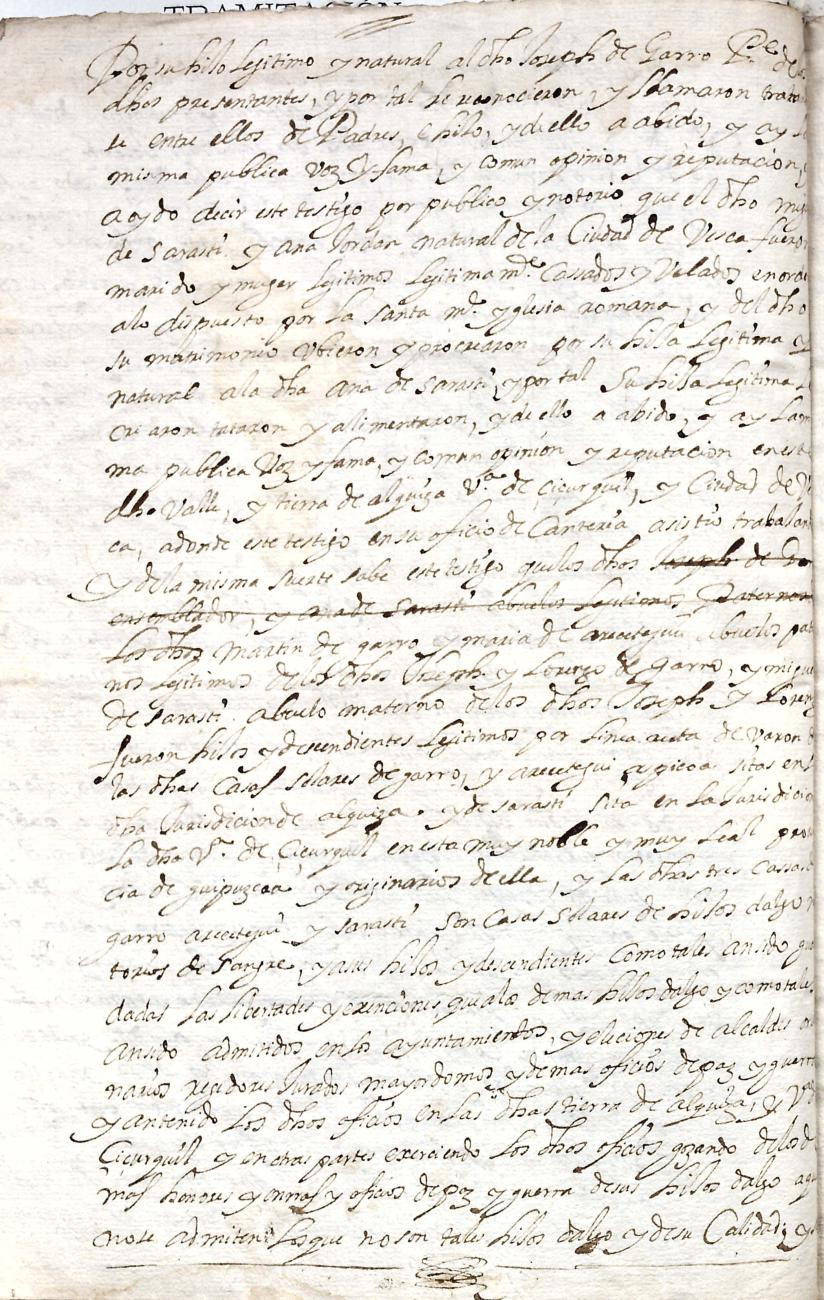 TRAMITACIÓN
Por su hilo lejitimo y natural al dho Joseph de Garro Pe de los
dhos presentantes, y por tal le reconocieron, y llamaron trato
se entre ellos de Padres, e hilo, y de ello a abido, y ay la
misma publica voz y fama, y comun opinion y reputacion, y
a oydo decir este testigo por publico y notorio que el dho migu
de Sarasti y Ana Jordan natural de la Ciudad de Vesca fueron
marido y muger lejitimos lejitimamte Cassados y Velados en orde
alo dispuesto por la Santa me yglesia romana, y del dho
su matrimonio Ubieron y procrearon por su hilla lejitima y
natural ala dha Ana de Sarasti, y por tal su hilla lejitima la
criaron tataron y alimentaron, y de ello a abido, y ay la mis
ma publica Voz y fama, y comun opinion y reputacion en este
dho Valle, y tierra de alquiza Va de Cicurquil, y Ciudad de Ves
ca, adonde este testigo en su oficio de Canteria asistio trabalan
y dela misma suerte sabe este testigo que los dhos Joseph de Ga
ensemblador, y Ana de Sarasti abuelos lejitimos Paternos
los dhos Martin de garro y maria de areeitegui abuelos pat
nos lejitimos delos dhos Joseph y Lorenzo de Garro, y migue
de Sarasti abuelo materno de los dhos Joseph y Loren
fueron hilos y descendientes lejitimos por linea recta de Varon de
las dhas Casas Solares de garro, y areeitegui aspicoa sitas en la
dha Jurisdicion de alquiza. y de sarasti sita en la Jurisdicion
la dha Va de Cicurquil en esta muy noble y muy leal provin
cia de guipuzcoa y originarios de ella, y las dhas tres Cassas
garro areeitegui y sarasti son Casas Solares de hilos dalgo no
torios de sangre, y a sus hilos y descendientes Como tales an sido gua
dadas las libertades y exenciones, que alos demas hilos dalgo y como tales
an sido admitidos en los ayuntamientos, y eleciones de alcaldes ordi
narios rejidores Jurados mayordomos y demas oficios de paz y guerra
y an tenido los dhos oficios en las dhas tierra de alquiza, y Va
Cicurquil y en otras partes exerciendo los dhos oficios gozando delos de
mas honores y onrras y oficios de paz y guerra de sus hilos dalgo a que
no se admiten los que no son tales hilos dalgo y de su Calidad, y